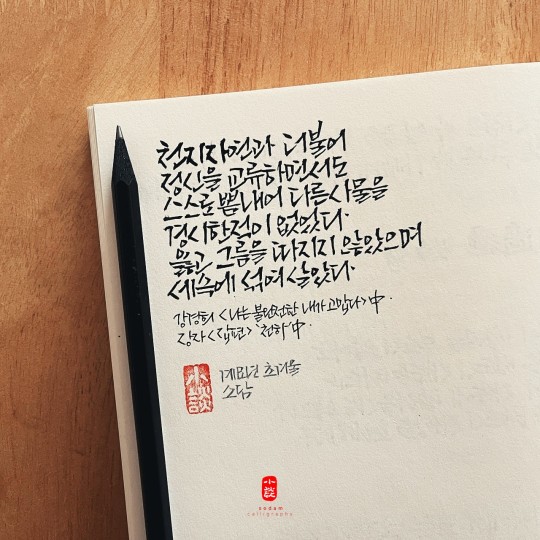 천지자연과 더불어
정신을 교류하면서도
스스로 뽐내어 다른사물을
경시한적이 없었다.
옳고 그름을 따지지 않았으며
세속에 섞여 살았다.
강경희 <나는 불완전한 내가 고맙다> 中.
장자 <잡편> '천하' 中.
小談
계묘년 초겨울
소담
小談
sodam
calligraphy